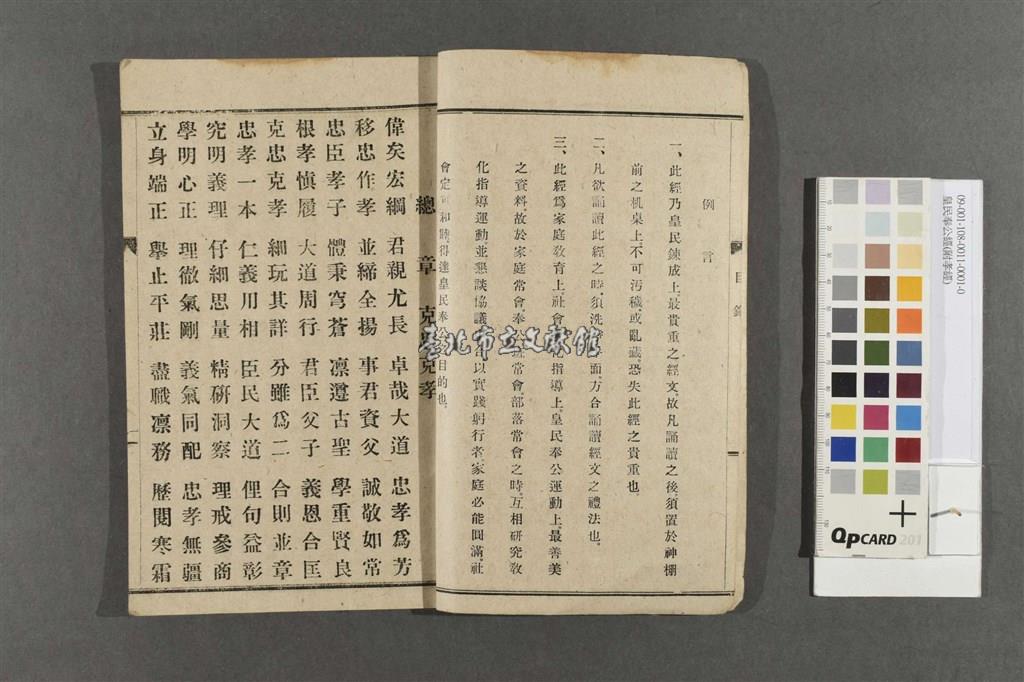 例言
一、此經乃皇民鍊成上、最貴重之經文、故凡誦讀之後、須置於神棚
前之机桌上、不可汚穢或亂藏、恐失此經之貴重也。
二、凡欲誦讀此經之時、須洗 面方合誦讀經文之禮法也。
三、此經爲家庭敎育上、社會 指導上、皇民奉公運動上、最善美
之資料、故於家庭常會、奉公 常會、部落常會之時、互相研究敎
化指導運動、並懇談協議 以實踐躬行者、家庭必能圓滿社
會定可和睦、得達皇民奉公 目的也。
目錄
總章 克忠克孝
偉矣宏綱 君親尤長 卓哉大道 忠孝爲芳
移忠作孝 並締全揚 事君資父 誠敬如常
忠臣孝子 體秉穹蒼 凛遵古聖 學重賢良
根孝愼履 大道周行 君臣父子 義恩合匡
克忠克孝 細玩其詳 分雖爲二 合則並章
忠孝一本 仁義用相 臣民大道 俚句益彰
究明義理 仔細思量 精硏洞察 理戒參商
學明心正 理徹氣剛 義氣同配 忠孝無疆
立身端正 擧止平莊 盡職凛務 歷閱寒霜
臺北市立文獻館
09-001-108-0011-0001-0
皇民奉公經(附孝經)
QPCARD 201